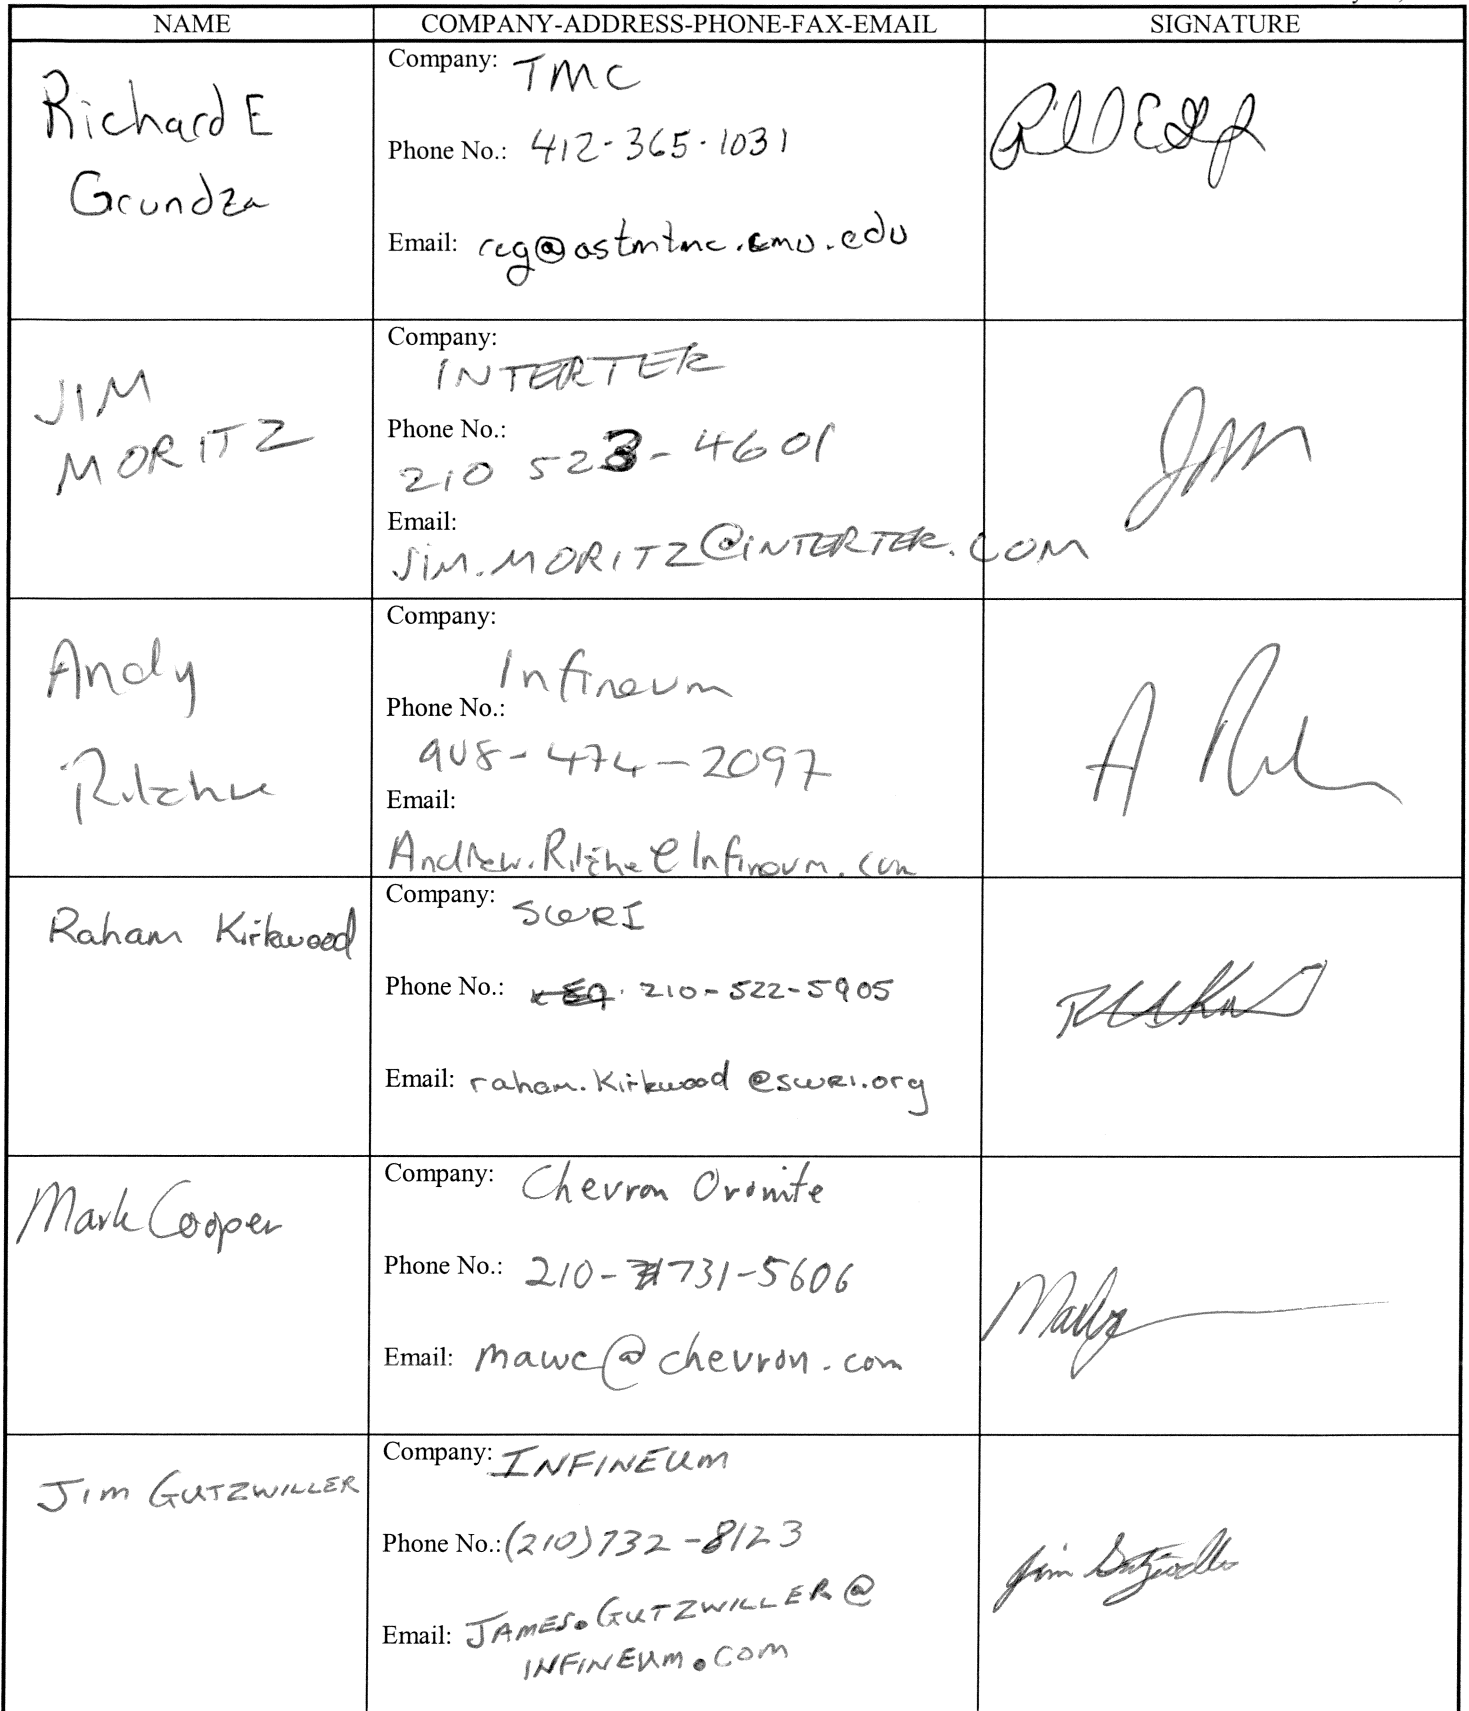 NAME COMPANY-ADDRESS-PHONE-FAX-EMAIL SIGNATURE
Richard E
Grundza
Company: TMC
Phone No.: 412-365-1031
Email: reg@astmtmc.cmu.edu
JIM
MORITZ
Company:
INTERTEK
Phone No.:
210 523-4601
Email:
JIM.MORITZ@INTERTEK.COM
Andy
Ritchie
Company:
Infineum
Phone No.:
908-474-2097
Email:
Andrew.Ritchie@Infineum.com
Raham Kirkwood
Company: SWRI
Phone No.: 210-522-5905
Email: raham.kirkwood@swri.org
Mark Cooper
Company: Chevron Oronite
Phone No.: 210-731-5606
Email: mawc@chevron.com
Jim GUTZWILLER
Company: INFINEUM
Phone No.: (210)732-8123
Email: JAMES.GUTZWILLER@
INFINEUM.COM
Jim Gutzwiller